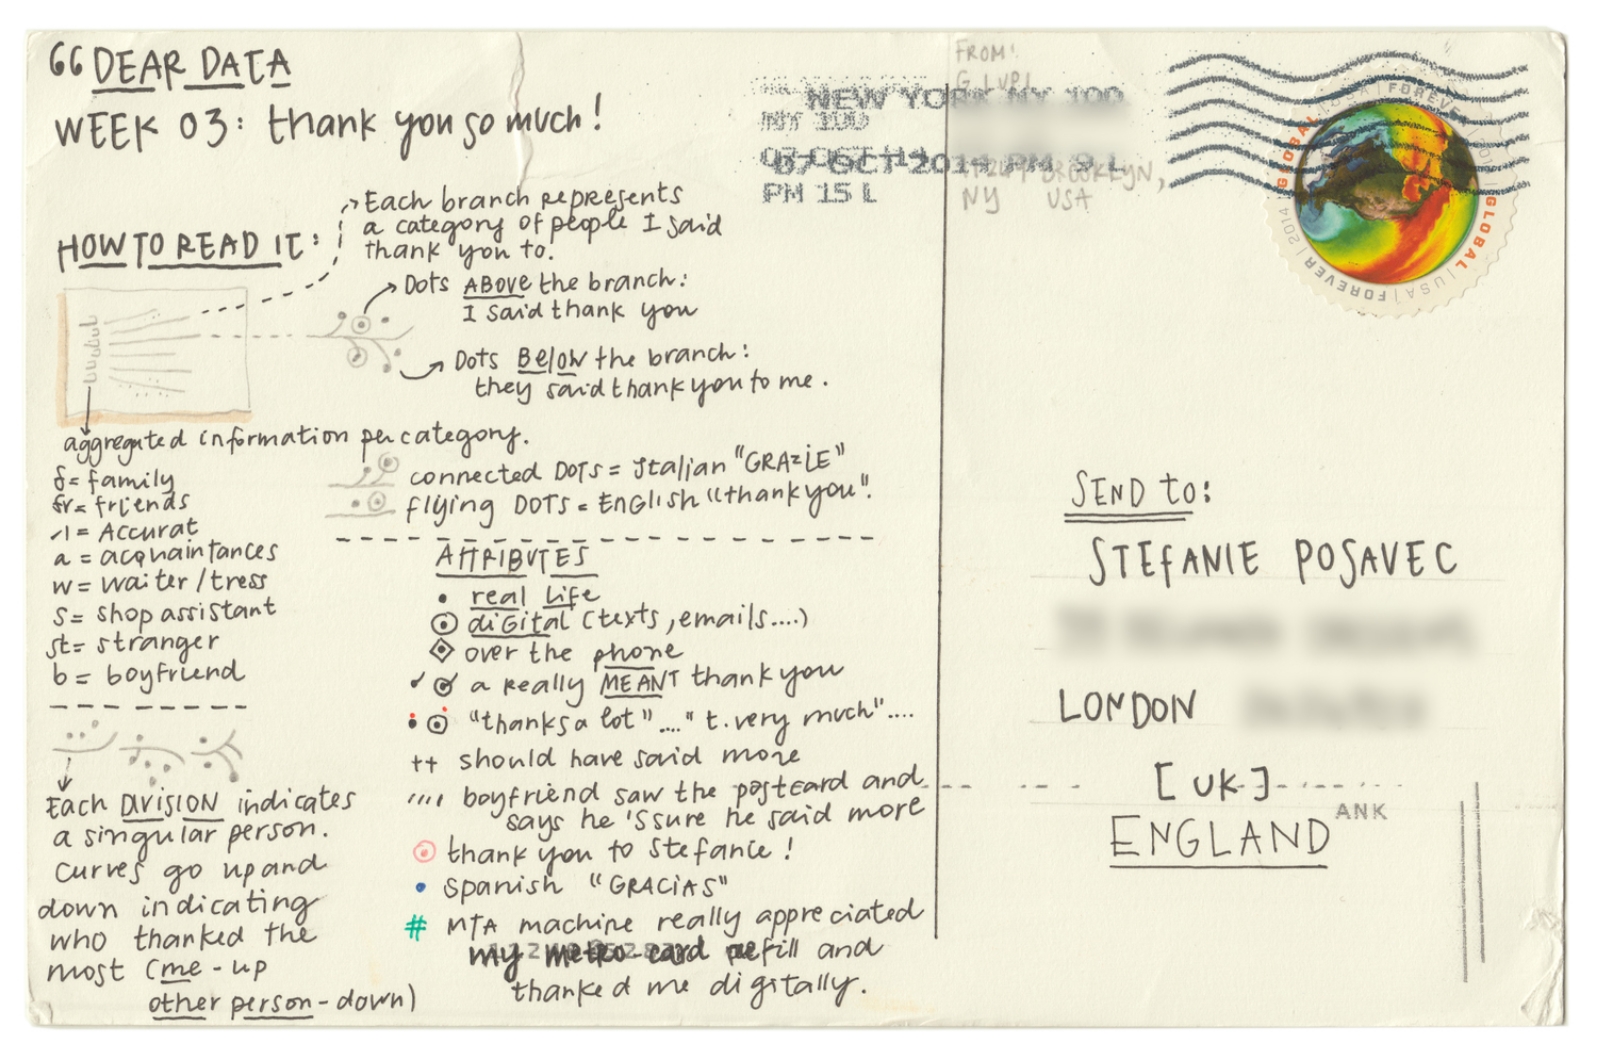 66 DEAR DATA
WEEK 03: thank you so much!
HOW TO READ IT:
Each branch represents
a category of people I said
thank you to.
Dots ABOVE the branch:
I said thank you
Dots BELOW the branch:
they said thank you to me.
aggregated information per category.
f= family
fr= friends
= Accurat
a = acquaintances
w= waiter/tress
s= shop assistant
st= stranger
b = boyfriend
connected DOTS = Italian "GRAZIE"
flying DOTS = ENGlish "thank you".
ATTRIBUTES
real life
diGital (texts, emails....)
over the phone
a really MEANT thank you
"thanks a lot" ...." t. very much"....
++ should have said more
boyfriend saw the postcard and
says he 's sure he said more
thank you to Stefanie!
spanish "GRACiAS"
# MTA machine really appreciated
my metro-card refill and
thanked me digitally.
Each DIVISION indicates
a singular person.
Curves go up and
down indicating
who thanked the
most (me - up
other person - down)
FROM:
NEW YORK NY 100
NY 100
07 OCT 2014 PM 9 L
PM 15 L
BROOKLYN,
NY USA
GLOBAL | USA | FOREVER | 2014 | GLOBAL | USA | FOREVER | 2014
SEND to:
STEFANIE POSAVEC
LONDON
[UK]
ENGLAND
ANK